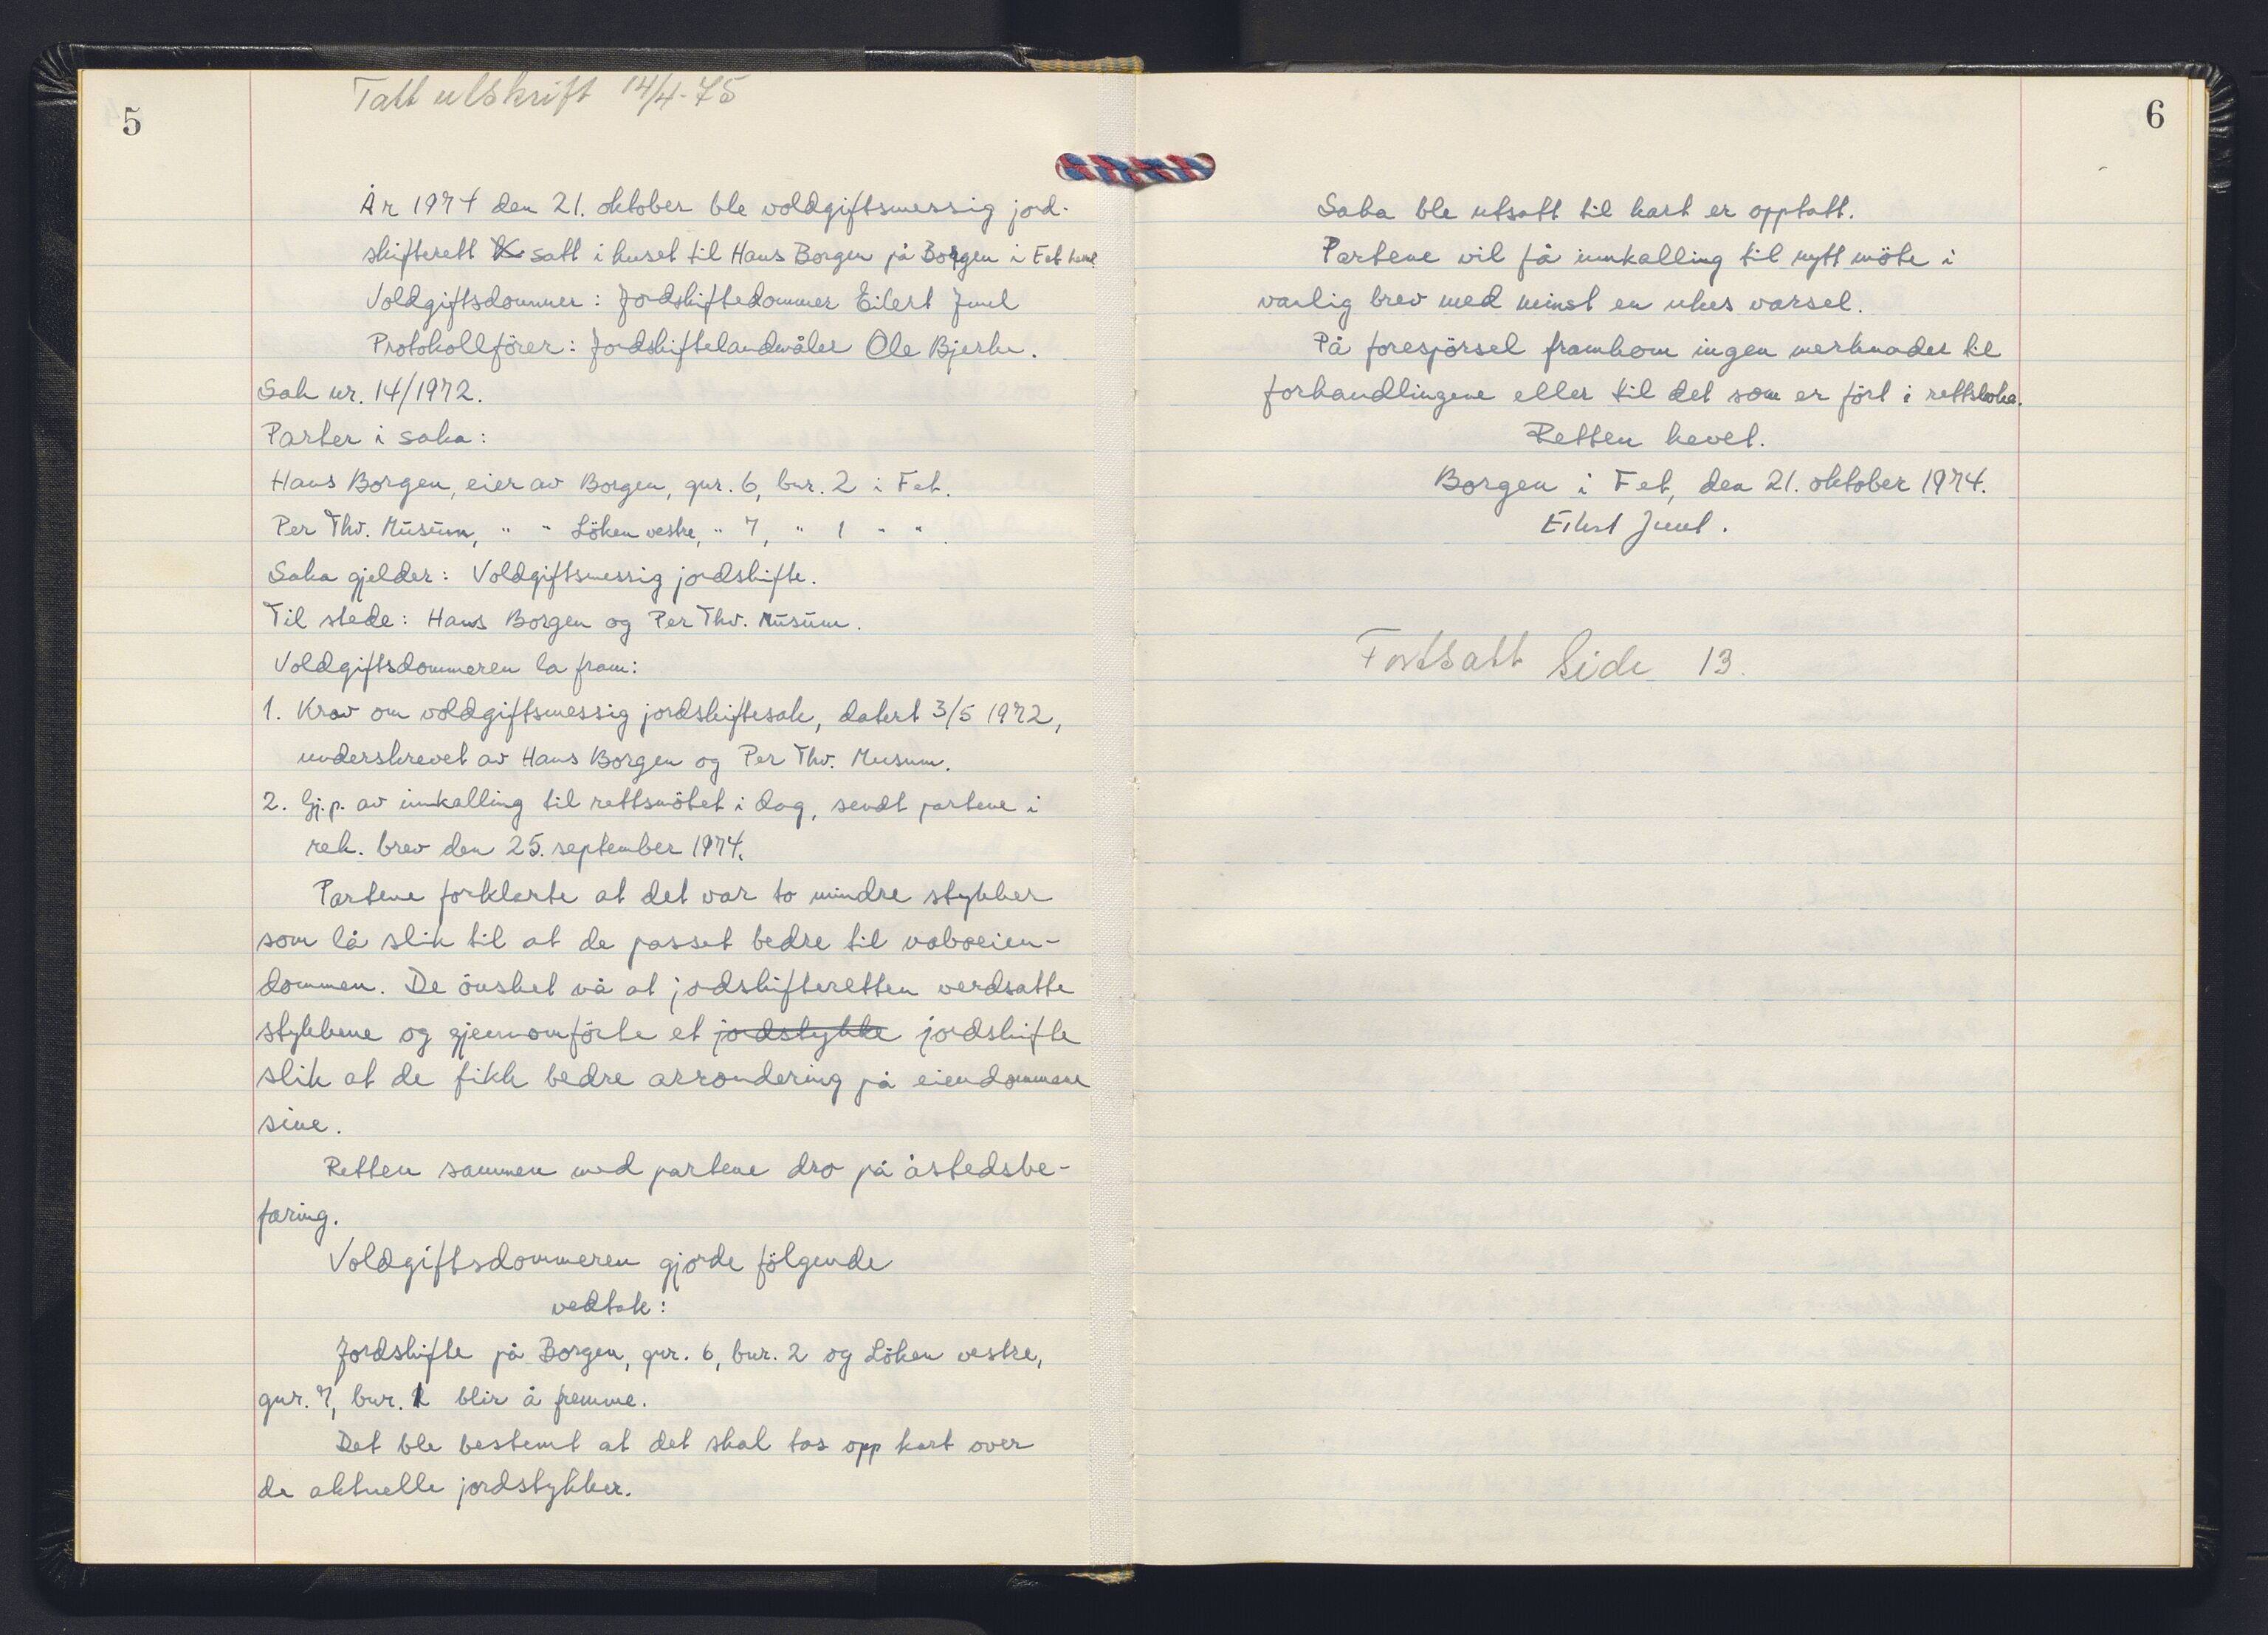 5
Tatt utskrift 14/4-75
År 1974 den 21. oktober ble voldgiftsmessig jord-
skifterett satt i huset til Hans Borgen på Borgen i Fet
Voldgiftsdommer: Jordskiftedommer Eilert Juul
Protokollförer: Jordskiftelandmåler Ole Bjerke.
Sak nr. 14/1972.
Parter i saka:
Hans Borgen, eier av Borgen, gnr. 6, bnr. 2 i Fet.
Per Thv. Musum, " " Löken vestre, " 7, " 1 " " .
Saka gjelder: Voldgiftsmessig jordskifte.
Til stede: Hans Borgen og Per Thv. Musum.
Voldgiftsdommeren la fram:
1. Krav om voldgiftsmessig jordskiftesak, datert 3/5 1972,
underskrevet av Hans Borgen og Per Thv. Musum.
2. Gj.p. av innkalling til rettsmötet i dag, sendt partene i
rek. brev den 25. september 1974.
Partene forklarte at det var to mindre stykker
som lå slik til at de passet bedre til naboeien-
dommen. De önsket nå at jordskifteretten verdsatte
stykkene og gjennomförte et jordstykke jordskifte
slik at de fikk bedre arrondering på eiendommene
sine.
Retten sammen med partene dro på åstedsbe-
faring.
Voldgiftsdommeren gjorde fölgende
vedtak:
Jordskifte på Borgen, gnr. 6, bnr. 2 og Löken vestre,
gnr. 7, bnr. 1 blir å fremme.
Det ble bestemt at det skal tas opp kart over
de aktuelle jordstykker.
6
Saka ble utsatt til kart er opptatt.
Partene vil få innkalling til nytt möte i
vanlig brev med minst en ukes varsel.
På forespörsel framkom ingen merknader til
forhandlingene eller til det som er fört i rettsboka.
Retten hevet.
Borgen i Fet, den 21. oktober 1974.
Eilert Juul.
Fortsatt side 13.